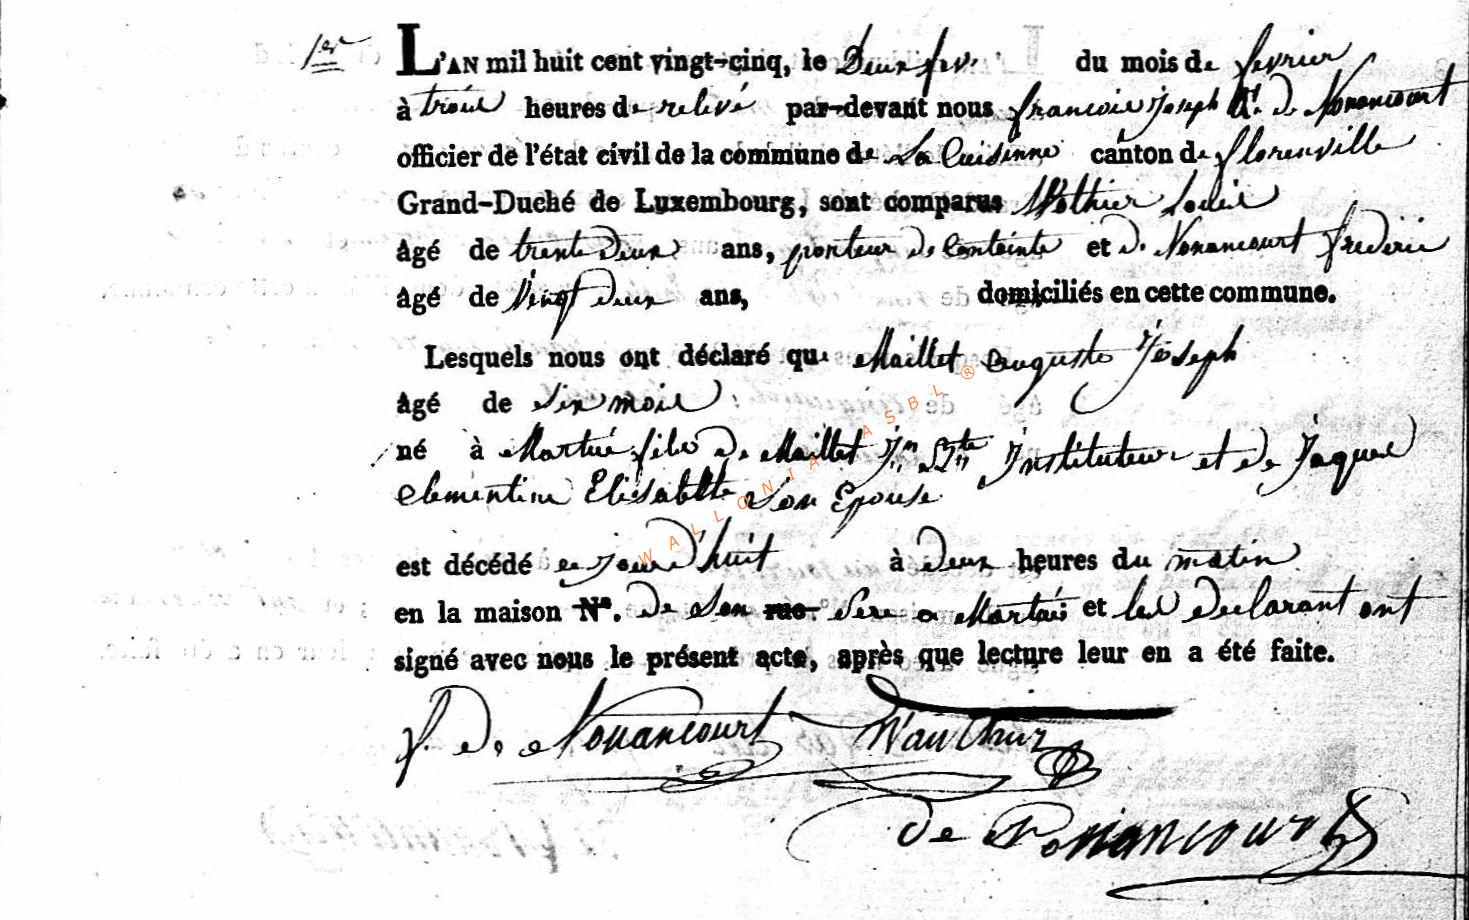 1er L'AN mil huit cent vingt-cinq, le Deux fev. du mois de fevrier
à trois heures de relevé par-devant nous francois Joseph de Nonancourt
officier de l'état civil de la commune de La Cuisinne canton de florenville
Grand-Duché de Luxembourg, sont comparus Louis
âgé de trente Deux ans, porteur de Containte et de Nonancourt frederic
âgé de Vingt Deux ans, domiciliés en cette commune.
Lesquels nous ont déclaré que Maillet Auguste Joseph
âgé de Six mois
né à Martué fils De Maillet Jn Bte Instituteur et de Jaques
Clementine Elisabette Son Epouse
est décédé ce jourd'huit à Deux heures du matin
en la maison N°. De Son rue Pere a Martué et les Declarant ont
signé avec nous le présent acte, après que lecture leur en a été faite.
f. De Nonancourt Wauthier
de Nonancourt
WALLONIA ASBL ®